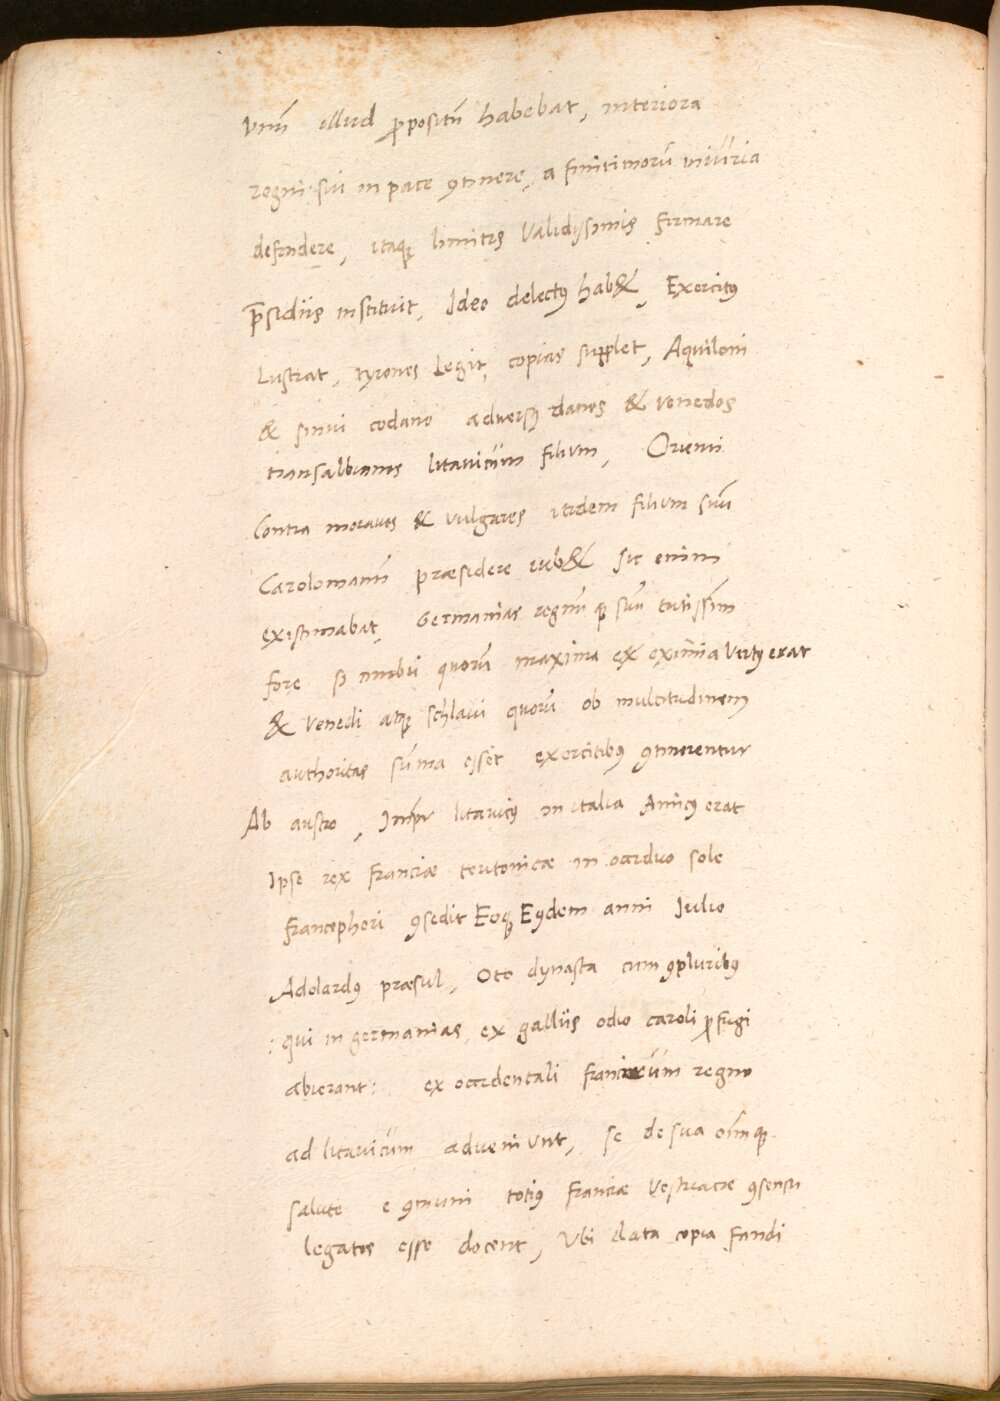 vnū illud ꝓpositū habebat, interiora
regni sui in pace ꝯtinere, a finitimorū iniuria
defendere, itaqꝫ limites validissimis firmare
p̄sidiis instituit, Ideo delectꝰ hab&, Exercitꝰ
Lustrat, tyrones Legit, copias supplet, Aquiloni
& sinui codano aduersꝰ danos & venedos
transalbianos litauicum filium, Orienti
Contra morauos & vulgares itidem filium suū
Carolomanū præsidere iub& sic enim
existimabat, Germanias regnū qꝫ suū tutissim̄
fore si ambii quorū maxima & eximia virtꝰ erat
& Venedi atqꝫ schlaui quorū ob multitudinem
authoritas sūma esset exercitibꝰ ꝯtinerentur
Ab austro, Imꝑr litauicꝰ in italia Amicꝰ erat
Ipse rex franciæ teutonicæ in occiduo sole
francophori ꝯsedit Eoqꝫ Eꝰdem anni Iulio
Adolardꝰ præsul, Oto dynasta cum ꝯpluribꝰ
: qui in germanias, ex galliis odio caroli ꝓfugi
abierant: ex occidentali francorum regno
ad litauicum adueniunt, se de sua om̄iqꝫ
salute e ꝯmuni totiꝰ franciæ Vestriacæ ꝯsensu
legatos esse docent, Vbi data copia fandi